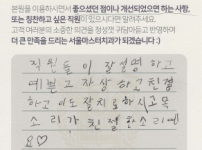 본원을 이용하시면서 좋았던 점이나 개선되었으면 하는 사항,
또는 칭찬하고 싶은 직원이 있으시다면 알려주세요.
고객 여러분의 소중한 의견을 정성껏 귀담아듣고 반영하여
더 큰 만족을 드리는 서울마스터치과가 되겠습니다 :)
직원들이 잘설명하고
예쁘고 자상하고 친절
하고 이도 잘치료하시고 목
소리가 친절한소리예
요♡